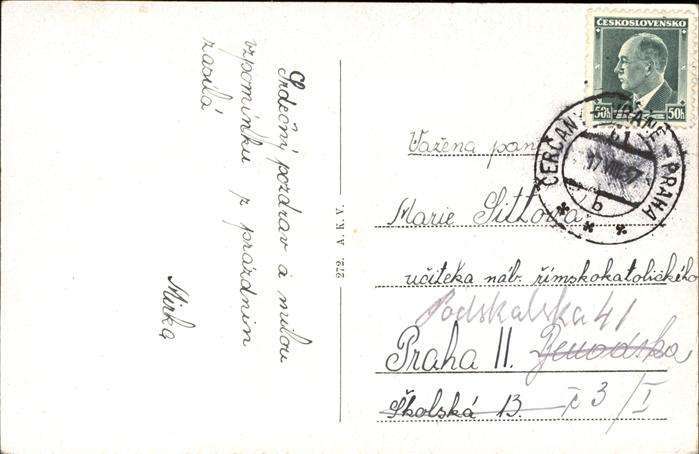 Srdečný pozdrav a milou
vzpomínku z prázdnin
zasílá
Mirka
272. A. K. V.
ČESKOSLOVENSKO
50h 50h
ČERČANY PRAHA
17 VIII 37
b
Vážená paní
Marie Sittová
učitelka náb. římskokatolického
Podskalská 41
Praha II.
Školská 13. č 3/I